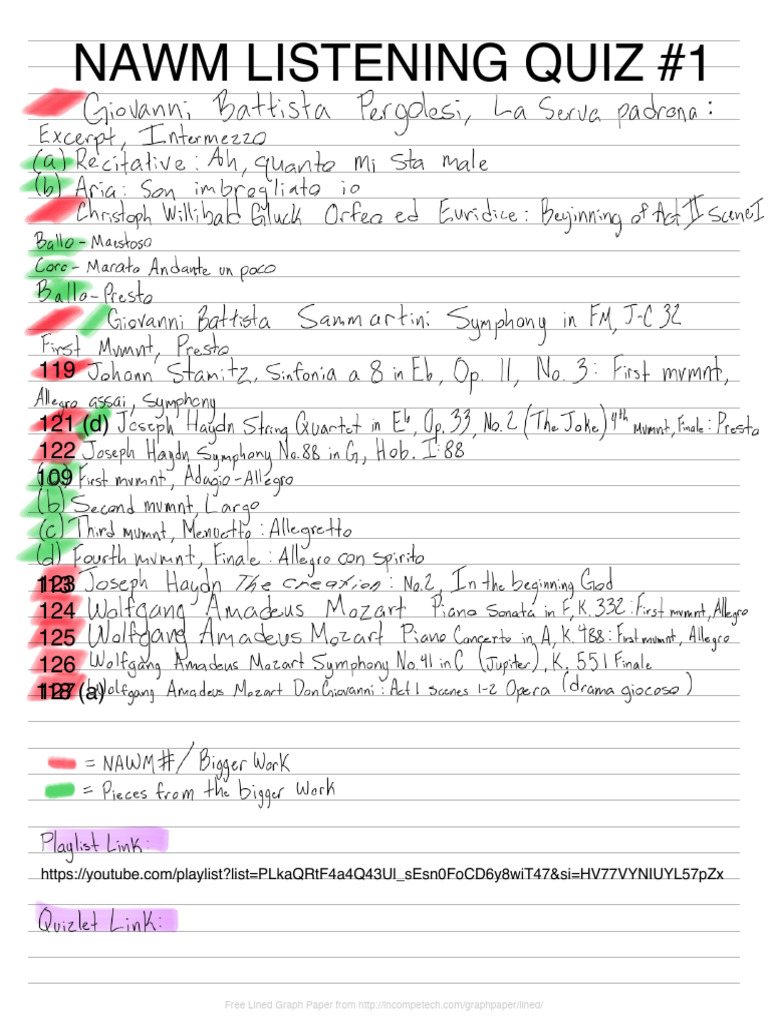 NAWM LISTENING QUIZ #1
Giovanni Battista Pergolesi, La Serva padrona:
Excerpt, Intermezzo
(a) Recitative: Ah, quanto mi sta male
(b) Aria: Son imbrogliato io
Christoph Willibald Gluck Orfeo ed Euridice: Beginning of Act II Scene I
Ballo - Maestoso
Coro - Marato Andante un poco
Ballo - Presto
Giovanni Battista Sammartini: Symphony in FM, J-C 32
First Mvmnt, Presto
119 Johann Stamitz, Sinfonia a 8 in Eb, Op. 11, No. 3: First mvmnt,
Allegro assai, Symphony
121 (d) Joseph Haydn String Quartet in Eb, Op. 33, No. 2 (The Joke) 4th Mvmnt, Finale: Presto
122 Joseph Haydn Symphony No. 88 in G, Hob. I:88
109 First mvmnt, Adagio-Allegro
(b) Second mvmnt, Largo
(c) Third mvmnt, Menuetto: Allegretto
(d) Fourth mvmnt, Finale: Allegro con spirito
123 Joseph Haydn The creation: No. 2, In the beginning God
124 Wolfgang Amadeus Mozart Piano Sonata in F, K. 332: First mvmnt, Allegro
125 Wolfgang Amadeus Mozart Piano Concerto in A, K. 488: First mvmnt, Allegro
126 Wolfgang Amadeus Mozart Symphony No. 41 in C (Jupiter), K. 551 Finale
(a) Wolfgang Amadeus Mozart Don Giovanni: Act 1 Scenes 1-2 Opera (drama giocoso)
= NAWM #/ Bigger Work
= Pieces from the bigger work
Playlist Link:
https://youtube.com/playlist?list=PLkaQRtF4a4Q43Ul_sEsn0FoCD6y8wiT47&si=HV77VYNIUYL57pZx
Quizlet Link:
Free Lined Graph Paper from http://incompetech.com/graphpaper/lined/